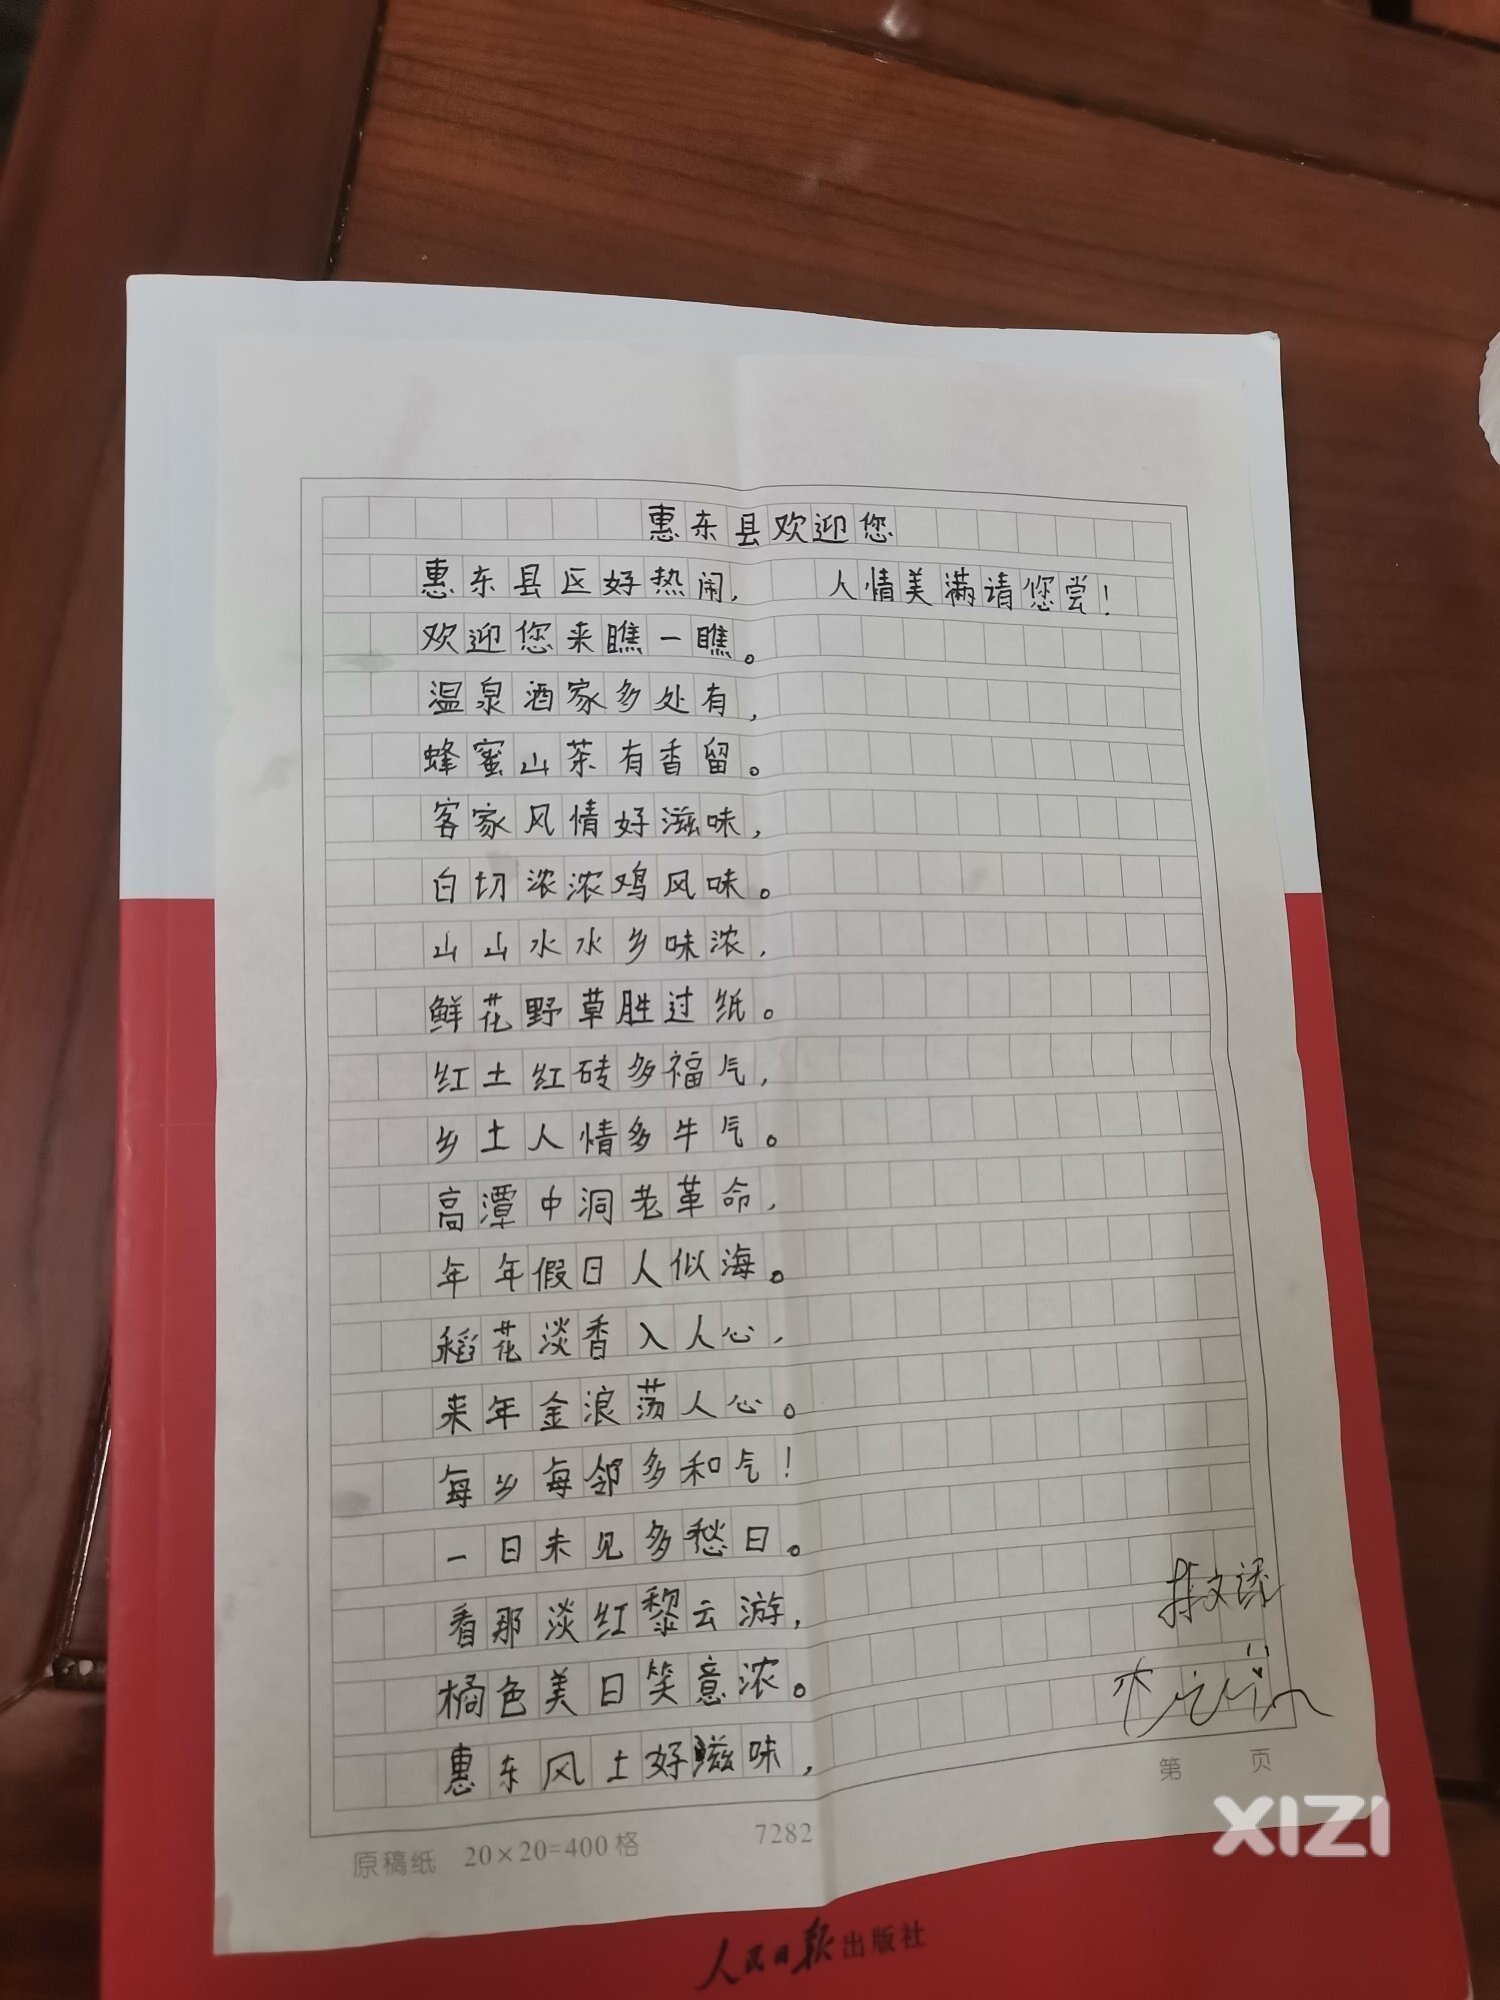 惠东县欢迎您
惠东县区好热闹,
欢迎您来瞧一瞧。
温泉酒家多处有,
蜂蜜山茶有香留。
客家风情好滋味,
白切浓浓鸡风味。
山山水水乡味浓,
鲜花野草胜过纸。
红土红砖多福气,
乡土人情多牛气。
高潭中洞老革命,
年年假日人似海。
稻花淡香入人心,
来年金浪荡人心。
每乡每邻多和气!
一日未见多愁日。
看那淡红黎云游,
橘色美日笑意浓。
惠东风土好滋味,
人情美满请您尝!
第 页
原稿纸 20×20=400格 7282
XIZI
人民日报出版社